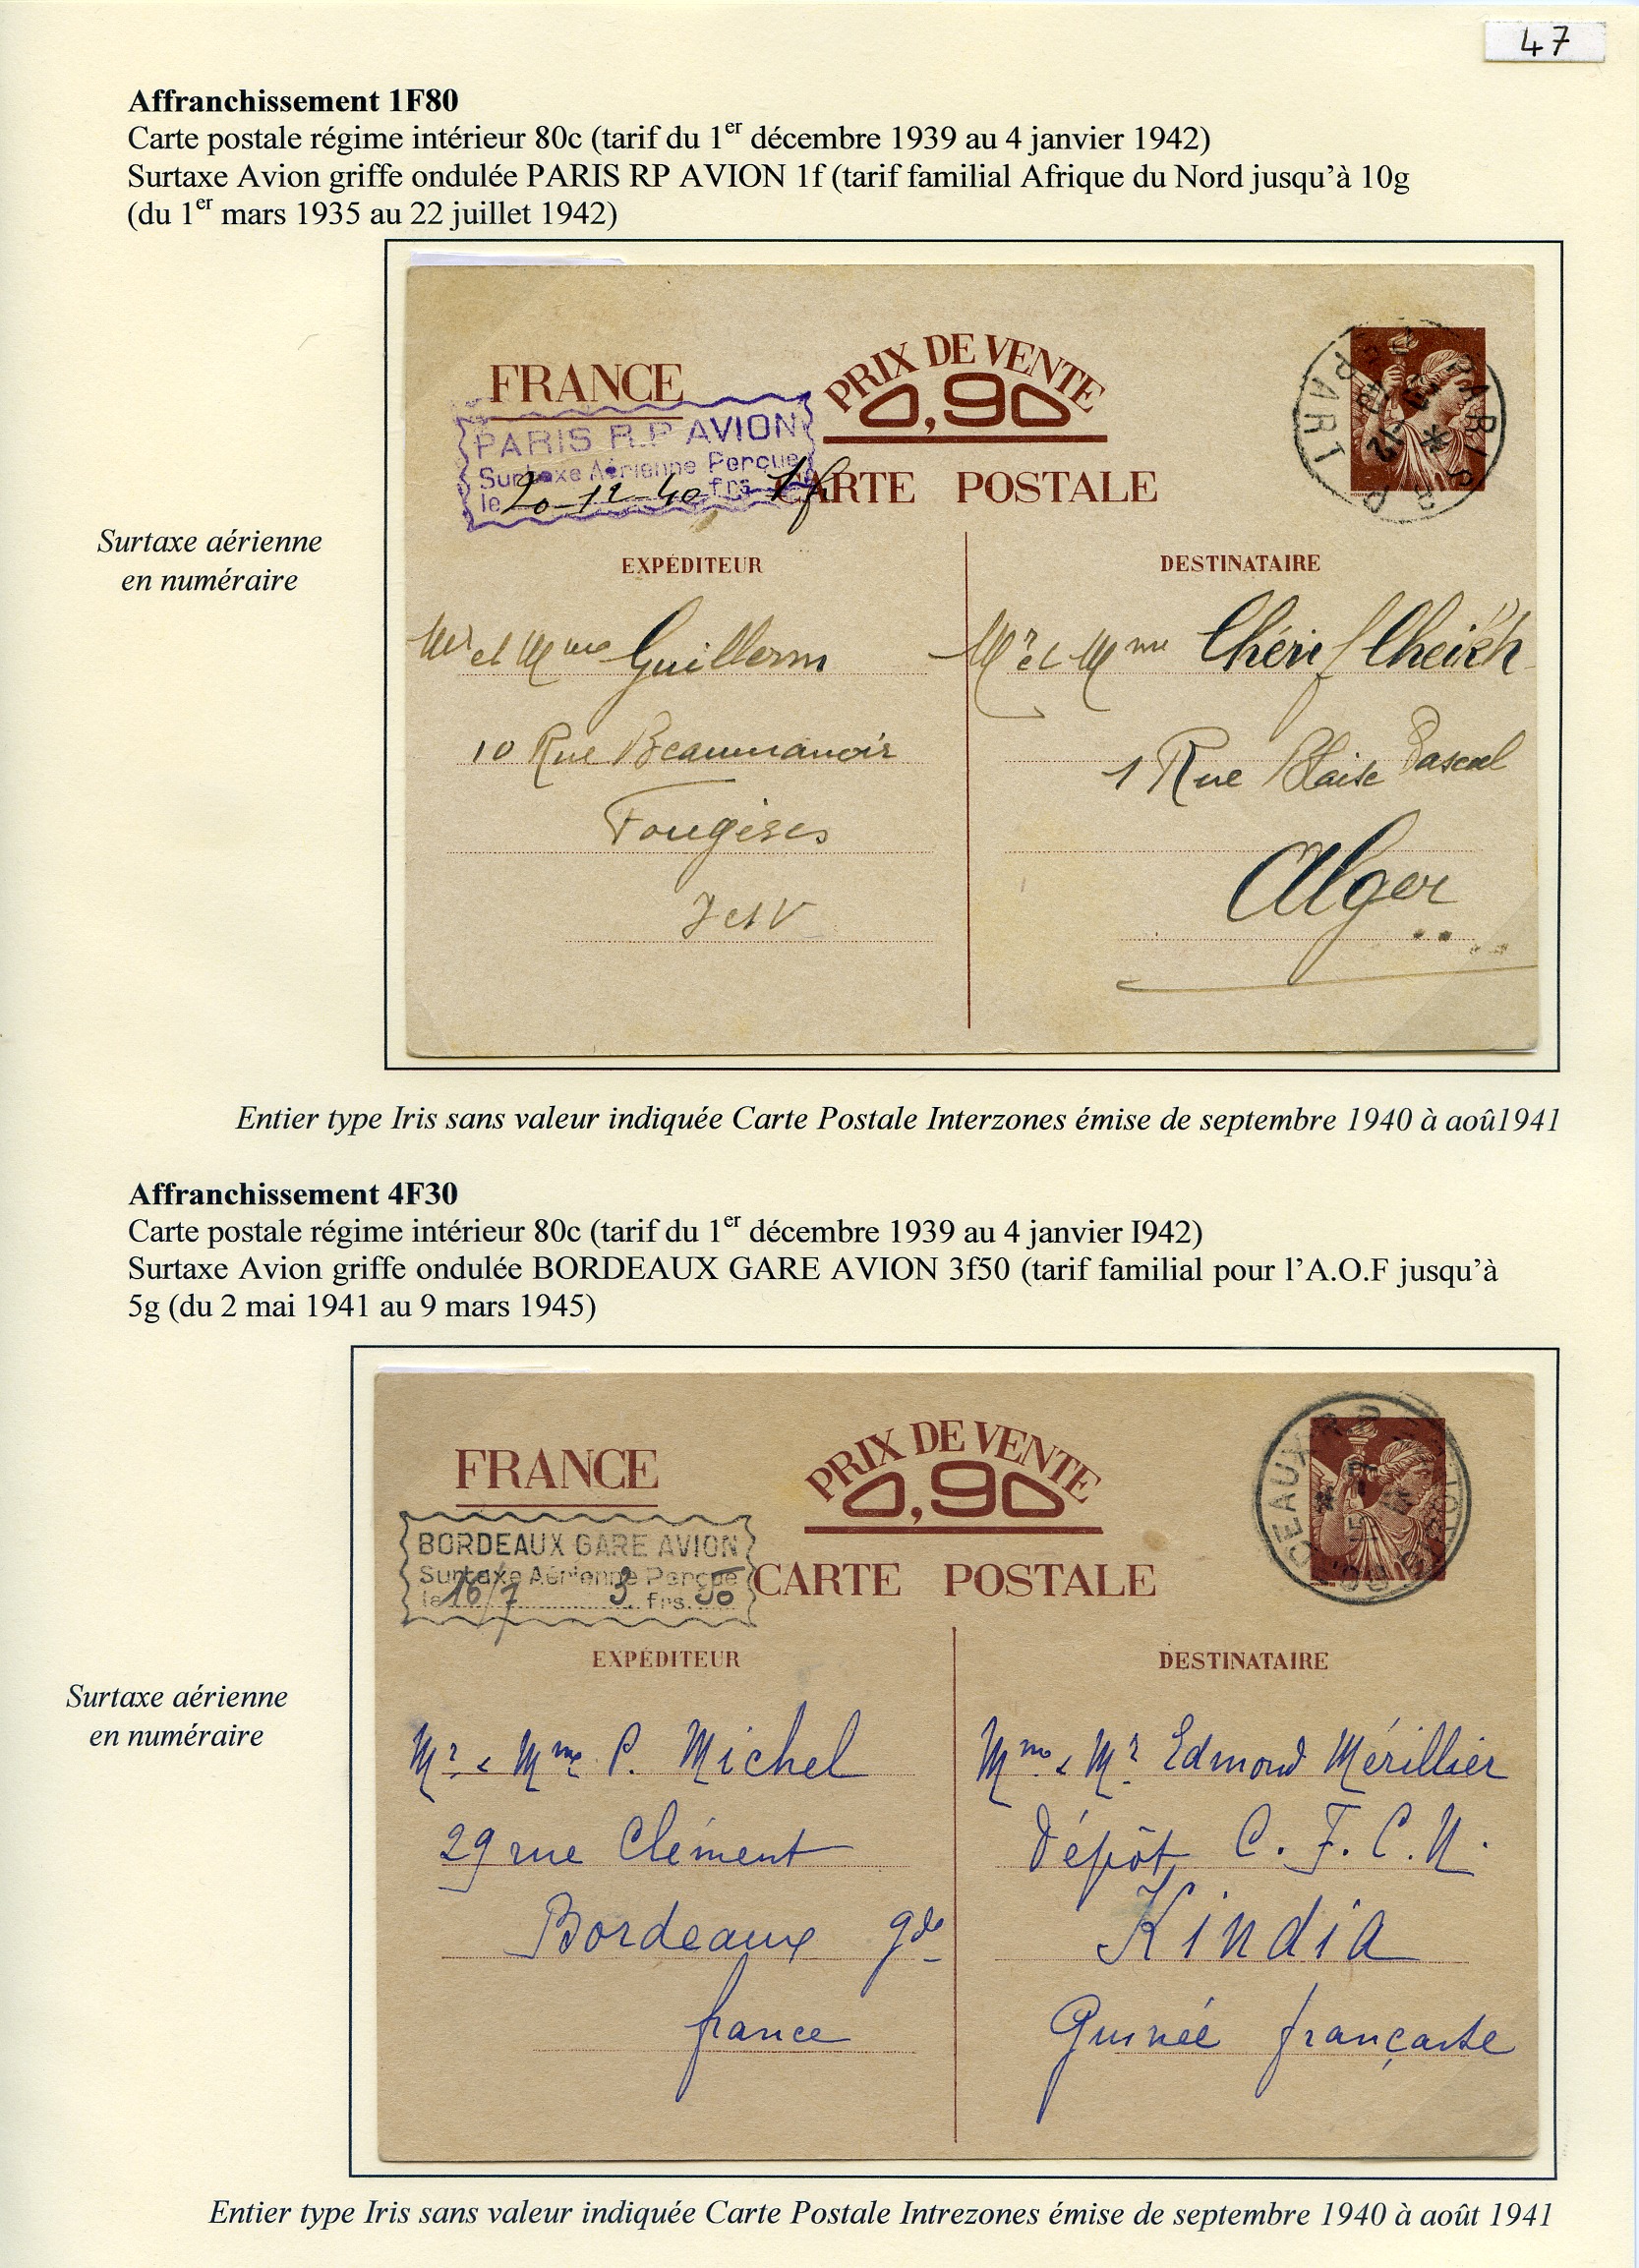 47
Affranchissement 1F80
Carte postale régime intérieur 80c (tarif du 1er décembre 1939 au 4 janvier 1942)
Surtaxe Avion griffe ondulée PARIS RP AVION 1f (tarif familial Afrique du Nord jusqu'à 10g
(du 1er mars 1935 au 22 juillet 1942)
FRANCE
PRIX DE VENTE
0,90
PARIS R.P AVION
Surtaxe Aérienne Perçue
le 20-12-40 frs 1f
CARTE POSTALE
Surtaxe aérienne
en numéraire
EXPÉDITEUR
Mr et Mme Guillerm
10 Rue Beaumanoir
Fougères
I et V
DESTINATAIRE
Mr et Mme Chérif Cheikh
1 Rue Blaise Pascal
Alger
Entier type Iris sans valeur indiquée Carte Postale Interzones émise de septembre 1940 à aoû1941
Affranchissement 4F30
Carte postale régime intérieur 80c (tarif du 1er décembre 1939 au 4 janvier I942)
Surtaxe Avion griffe ondulée BORDEAUX GARE AVION 3f50 (tarif familial pour l'A.O.F jusqu'à
5g (du 2 mai 1941 au 9 mars 1945)
FRANCE
PRIX DE VENTE
0,90
BORDEAUX GARE AVION
Surtaxe Aérienne Perçue
le 16/7 3 frs. 50
CARTE POSTALE
Surtaxe aérienne
en numéraire
EXPÉDITEUR
Mr & Mme P. Michel
29 rue Clément
Bordeaux gde
france
DESTINATAIRE
Mme & Mr Edmond Mérillier
Dépôt C. F. C. N.
Kindia
Guinée française
Entier type Iris sans valeur indiquée Carte Postale Intrezones émise de septembre 1940 à août 1941